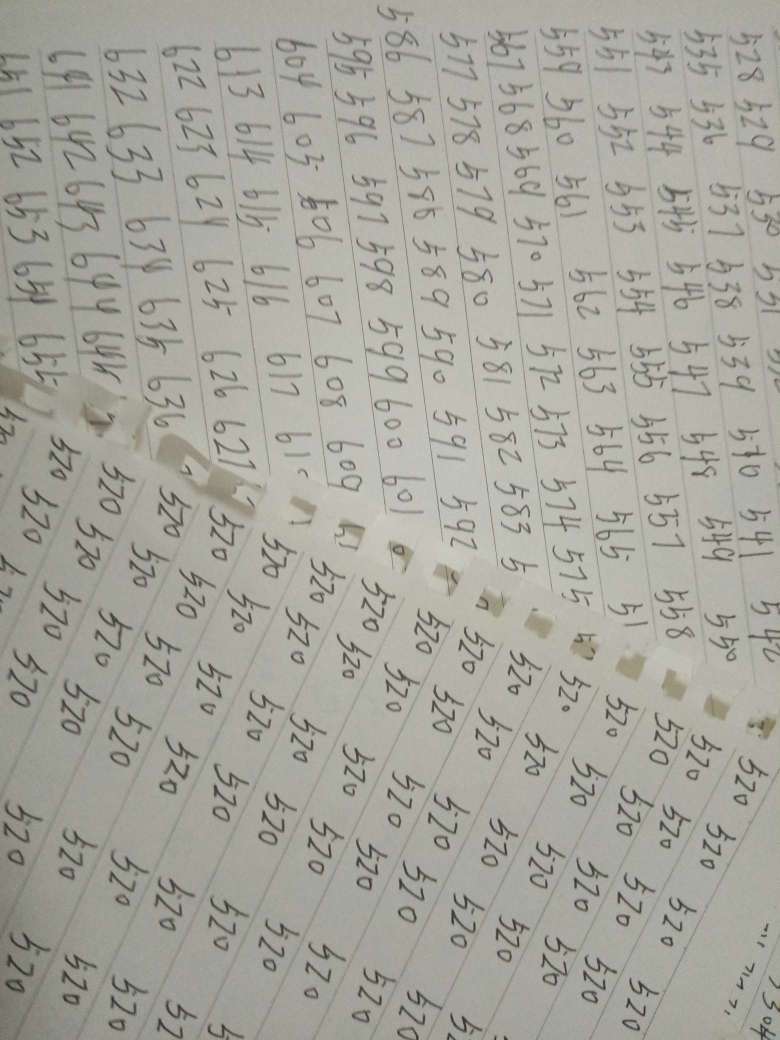 528 529 530 531
535 536 537 538 539 540 541 542
543 544 545 546 547 548 549 550
551 552 553 554 555 556 557 558
559 560 561 562 563 564 565
567 568 569 570 571 572 573 574 575
577 578 579 580 581 582 583
586 587 588 589 590 591 592
595 596 597 598 599 600 601
604 605 606 607 608 609
613 614 615 616 617
622 623 624 625 626 627
632 633 634 635 636
641 642 643 644 644
651 652 653 654 655
520 520 520 520
520 520 520 520
520 520 520 520
520 520 520 520
520 520 520 520 520
520 520 520 520 520
520 520 520 520 520
520 520 520 520 520
520 520 520 520 520 52
520 520 520 520 520 520
520 520 520 520 520 520
520 520 520 520 520 520
520 520 520 520 520
520 520 520 520
520 520
520